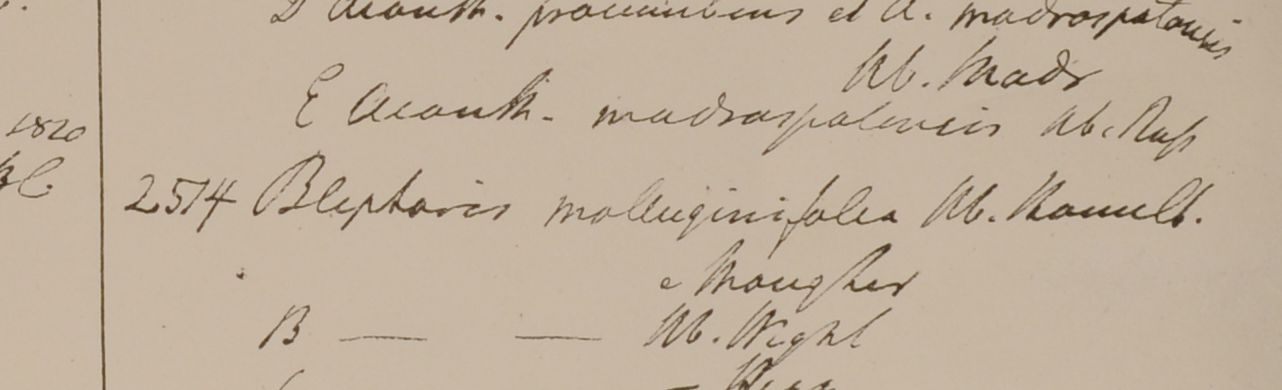 D Acanth. procumbens et A. madraspatensis
Hb. Madr
E Acanth. madraspatensis Hb. Russ
1820
2514 Blepharis molluginifolia Hb. Hamilt.
e Mongher
B — — Hb. Wight